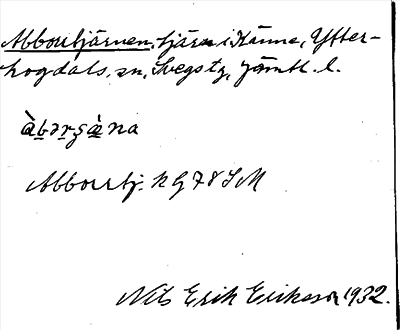 Abborrtjärnen, tjärn i Känne, Ytter-
hogdals sn, Svegs tg, Jämtl. l.
àbərʂæ̀na
Abborrtj. k G 78 SM
Nils Erik Eriksson 1932.